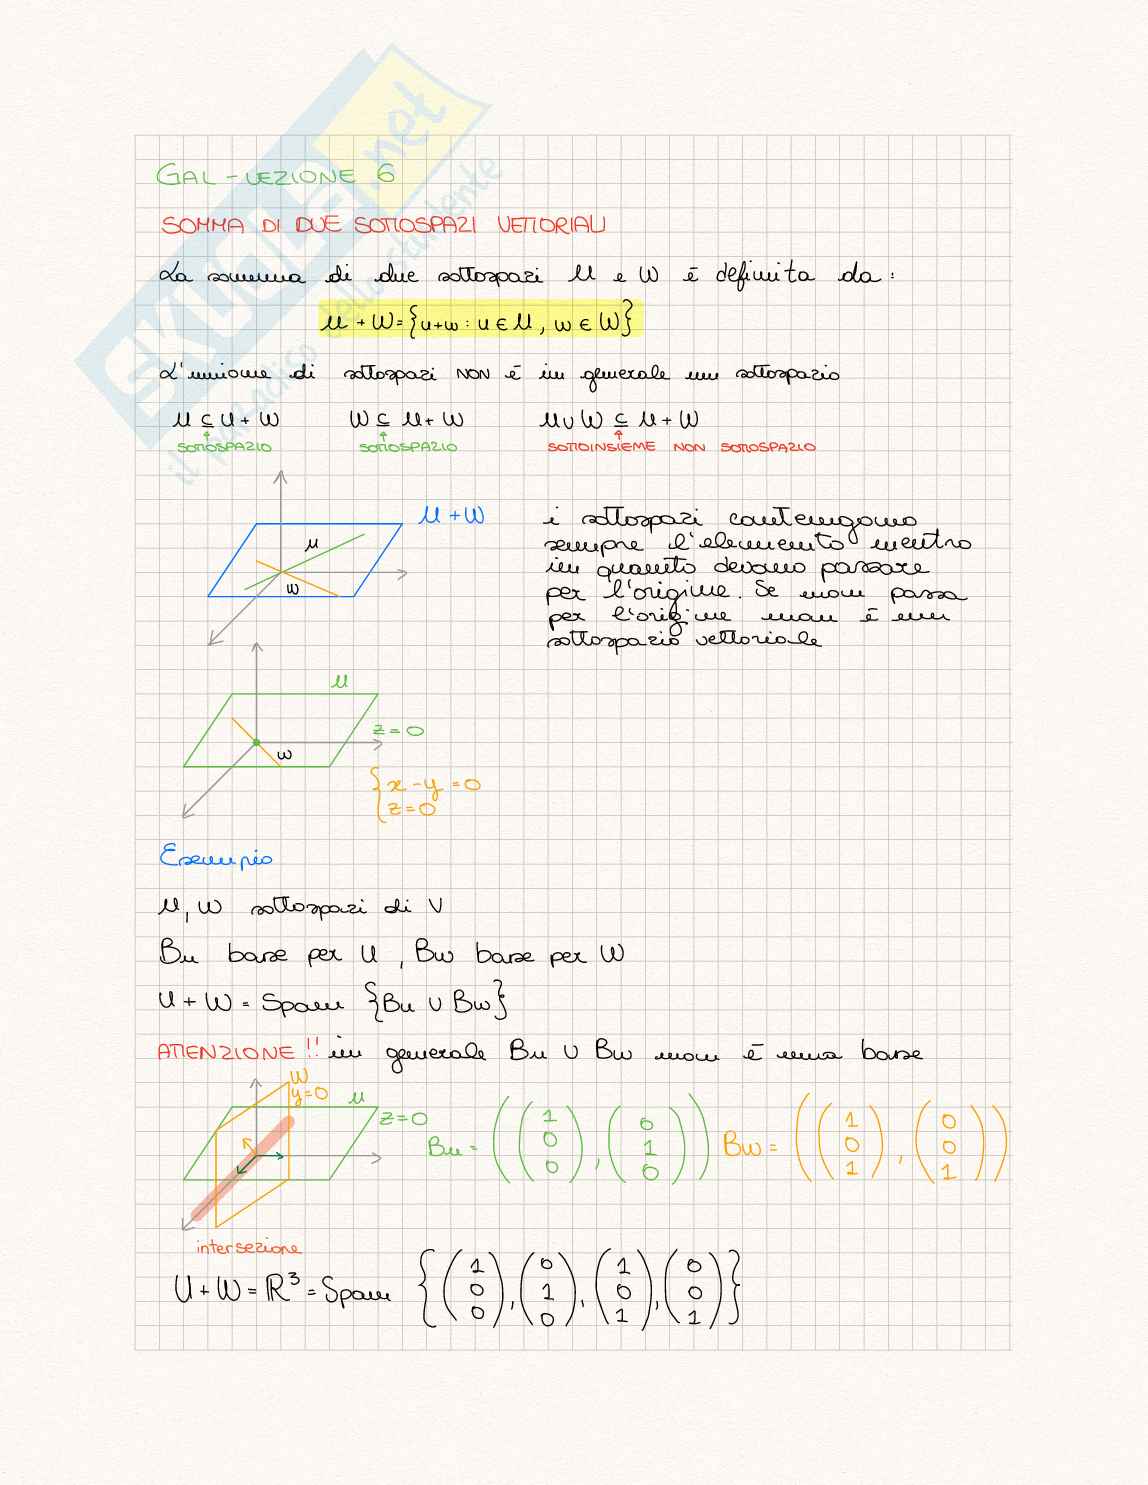 GAL - LEZIONE 6
SOMMA DI DUE SOTTOSPAZI VETTORIALI
La somma di due sottospazi U e W è definita da:
U + W = {u+w : u ∈ U, w ∈ W}
L'unione di sottospazi NON è in generale un sottospazio
U ⊆ U + W   W ⊆ U + W   U ∪ W ⊆ U + W
SOTTOSPAZIO   SOTTOSPAZIO   SOTTOINSIEME NON SOTTOSPAZIO
U + W
U
W
i sottospazi contengono
sempre l'elemento neutro
in quanto devono passare
per l'origine. Se non passa
per l'origine non è un
sottospazio vettoriale
U
z = 0
W
{ x - y = 0
z = 0
Esempio
U, W sottospazi di V
Bu base per U, Bw base per W
U + W = Span {Bu ∪ Bw}
ATTENZIONE!! in generale Bu ∪ Bw non è una base
W
y = 0
U
z = 0
Bu = ((1 0 0), (0 1 0))   Bw = ((1 0 1), (0 0 1))
intersezione
U + W = ℝ³ = Span {(1 0 0), (0 1 0), (1 0 1), (0 0 1)}
SKUOLA.net